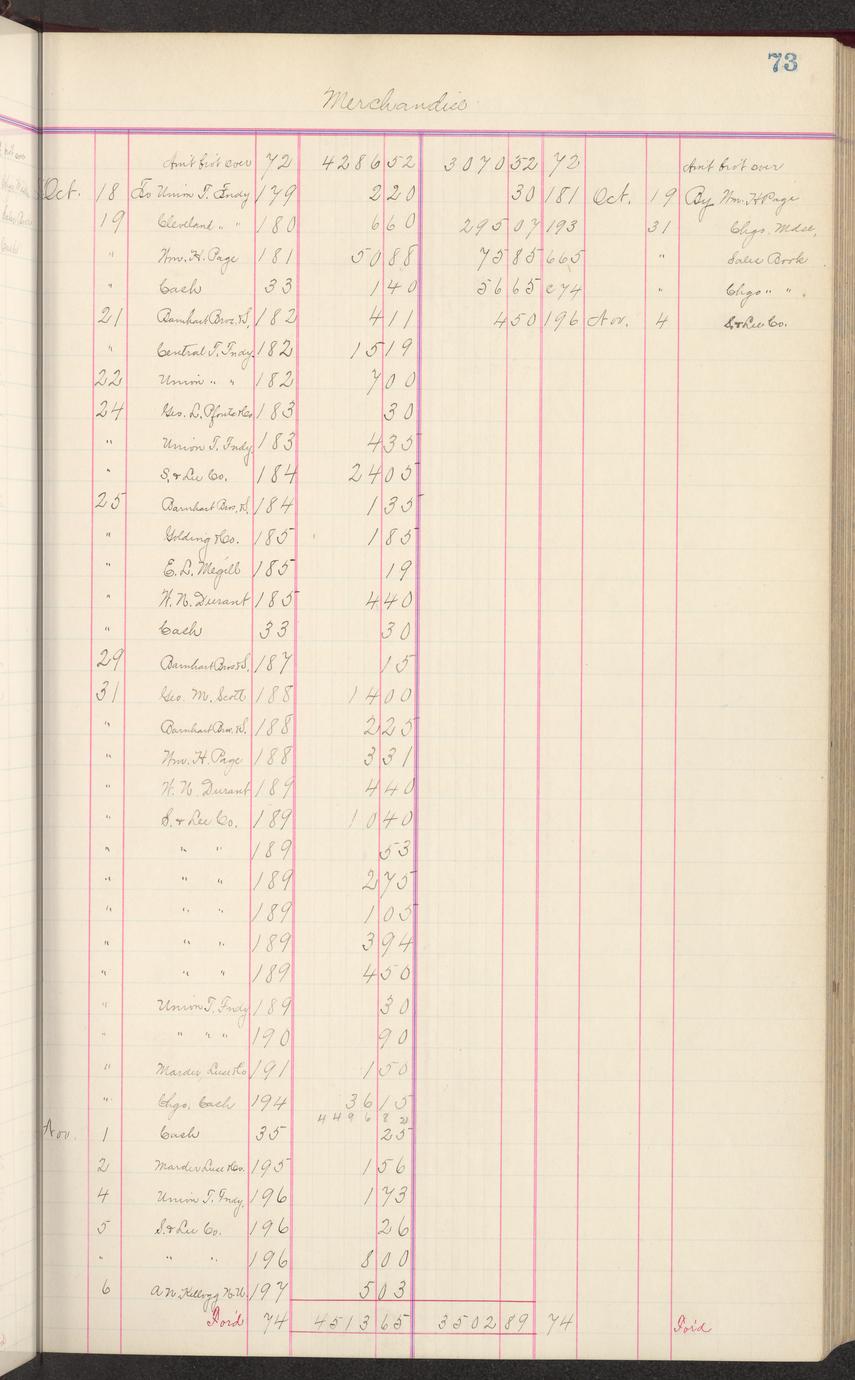 73
Merchandise
Am't bro't over 72 4286 52 3070 52 72 Am't bro't over
Oct. 18 To Union T. Fndy 179 2 20 30 181 Oct. 19 By Wm. H. Page
19 Cleveland " " 180 6 60 295 07 193 31 Chgs. Mdse,
" Wm. H. Page 181 50 88 75 85 665 " Sales Book
" Cash 33 1 40 56 65 c74 " Chgo " "
21 Barnhart Bros. & S. 182 4 11 4 50 196 Nov. 4 S. & Lee Co.
" Central T. Fndy. 182 15 19
22 Union " " 182 7 00
24 Geo. L. & Co 183 30
" Union T. Fndy 183 4 35
" S. & Lee Co. 184 24 05
25 Barnhart Bros. & S. 184 1 35
" Golding & Co. 185 1 85
" E. L. Megill 185 19
" W. N. Durant 185 4 40
" Cash 33 30
29 Barnhart Bros & S. 187 15
31 Geo. M. Scott 188 14 00
" Barnhart Bros. & S. 188 2 25
" Wm. H. Page 188 3 31
" W. N. Durant 189 4 40
" S. & Lee Co. 189 10 40
" " " 189 53
" " " 189 2 75
" " " 189 1 05
" " " 189 3 94
" " " 189 4 50
" Union T. Fndy 189 30
" " " " 190 90
" Marder, Luse & Co 191 1 50
" Chgo, Cash 194 36 15
4496 82
Nov. 1 Cash 35 25
2 Marder Luse & Co. 195 1 56
4 Union T. Fndy. 196 1 73
5 S. & Lee Co. 196 26
" " " 196 8 00
6 A. N. Kellogg N. U. 197 5 03
For'd 74 4513 65 3502 89 74 For'd